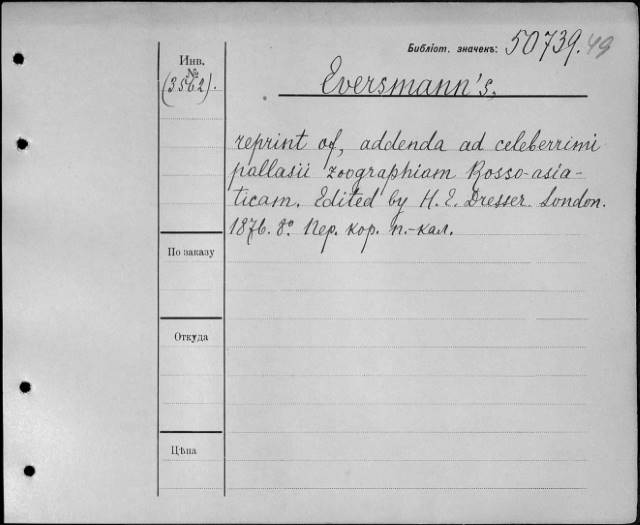 Библіот. значекъ: 50739. 49
Инв.
№
(3562).
Eversmann's.
reprint of, addenda ad celeberrimi
pallasii zoographiam Rosso-asia-
ticam. Edited by H. E. Dresser. London.
1876. 8° Пер. кор. п.-кал.
По заказу
Откуда
Цѣна